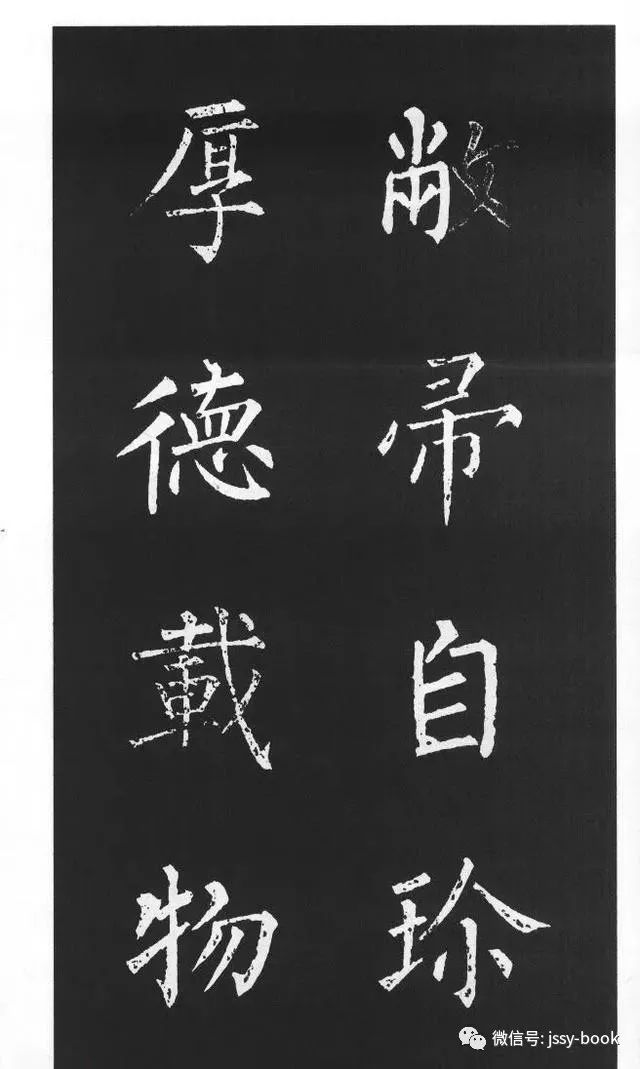 敝帚自珍
厚德載物
微信号: jssy-book